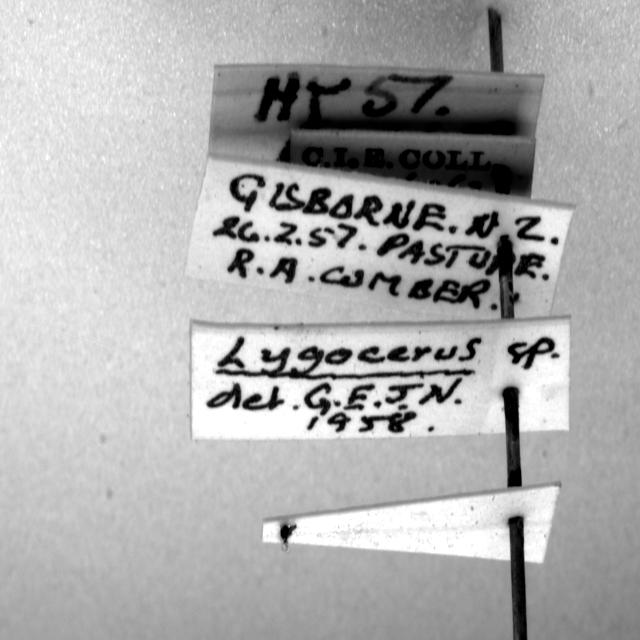 HY 57.
C.I.E. COLL.
GISBORNE. N.Z.
26.2.57. PASTURE.
R.A. CUMBER.
Lygocerus sp.
det. G.E.J.N.
1958.